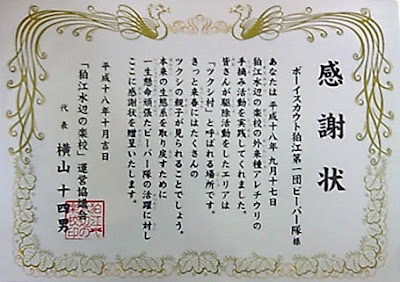 感謝状
ボーイスカウト狛江第一団ビーバー隊 様
あなたは平成十八年九月十七日
狛江水辺の楽校の外来種アレチウリの
手摘み活動を実践してくれました。
皆さんが駆除活動をしたエリアは
「ツクシ村」と呼ばれる場所です。
きっと来春にはたくさんの
ツクシの親子が見られることでしょう。
本来の生態系を取り戻すために
一生懸命頑張たビーバー隊の活躍に対し
ここに感謝状を贈呈いたします。
平成十八年十月吉日
「狛江水辺の楽校」運営協議会
代表 横山十四男